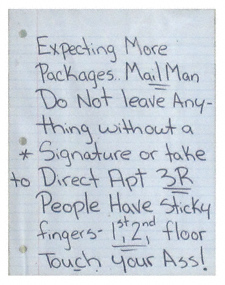 Expecting More
Packages.. MailMan
Do Not leave Any-
thing without a
* Signature or take
to Direct Apt 3R
People Have Sticky
fingers- 1st 2nd floor
Touch your Ass!